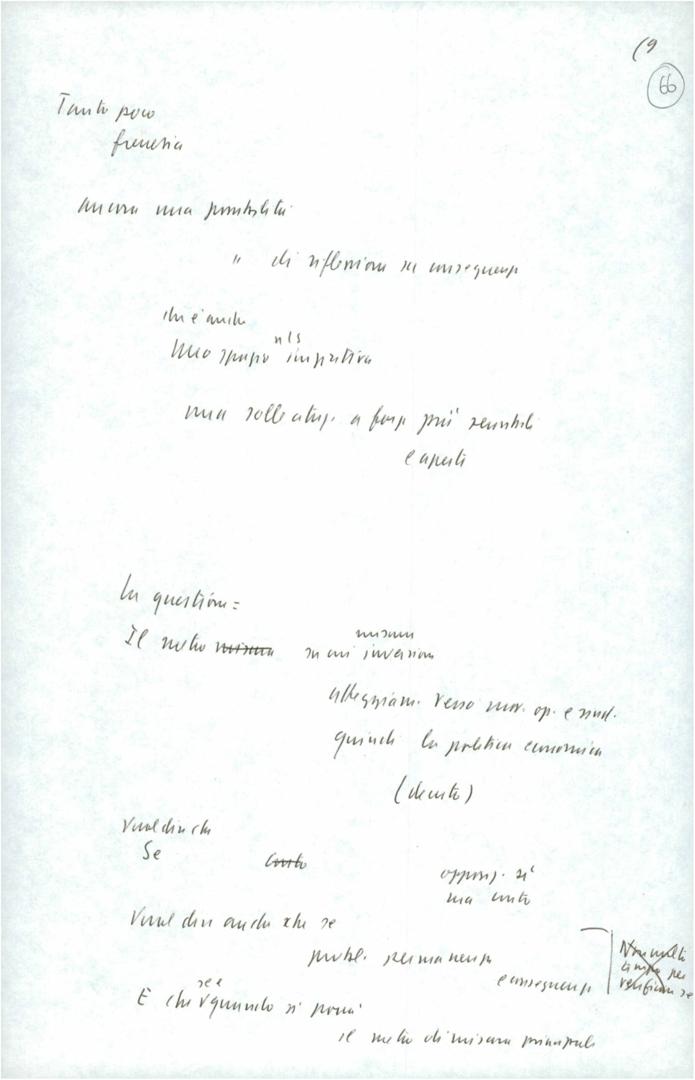 (9
66
Tanto poco
frenesia
ancora una possibilità
" di riflessione su conseguenz
che è anche
nls
Mio spazio impeditiva
una sollecitaz. a forze più sensibili
e aperte
La questione =
Il metro misura su cui inversione
misura
atteggiam. verso mov. op. e sind.
quindi la politica economica
(decreto)
Vuol dire che
Se conto
opposiz. sì
ma conto
Vuol dire anche che se
probl. permanenza
e conseguenze
Non molti
verificare se
E che quando si porrà
se e
il metro di misura principale